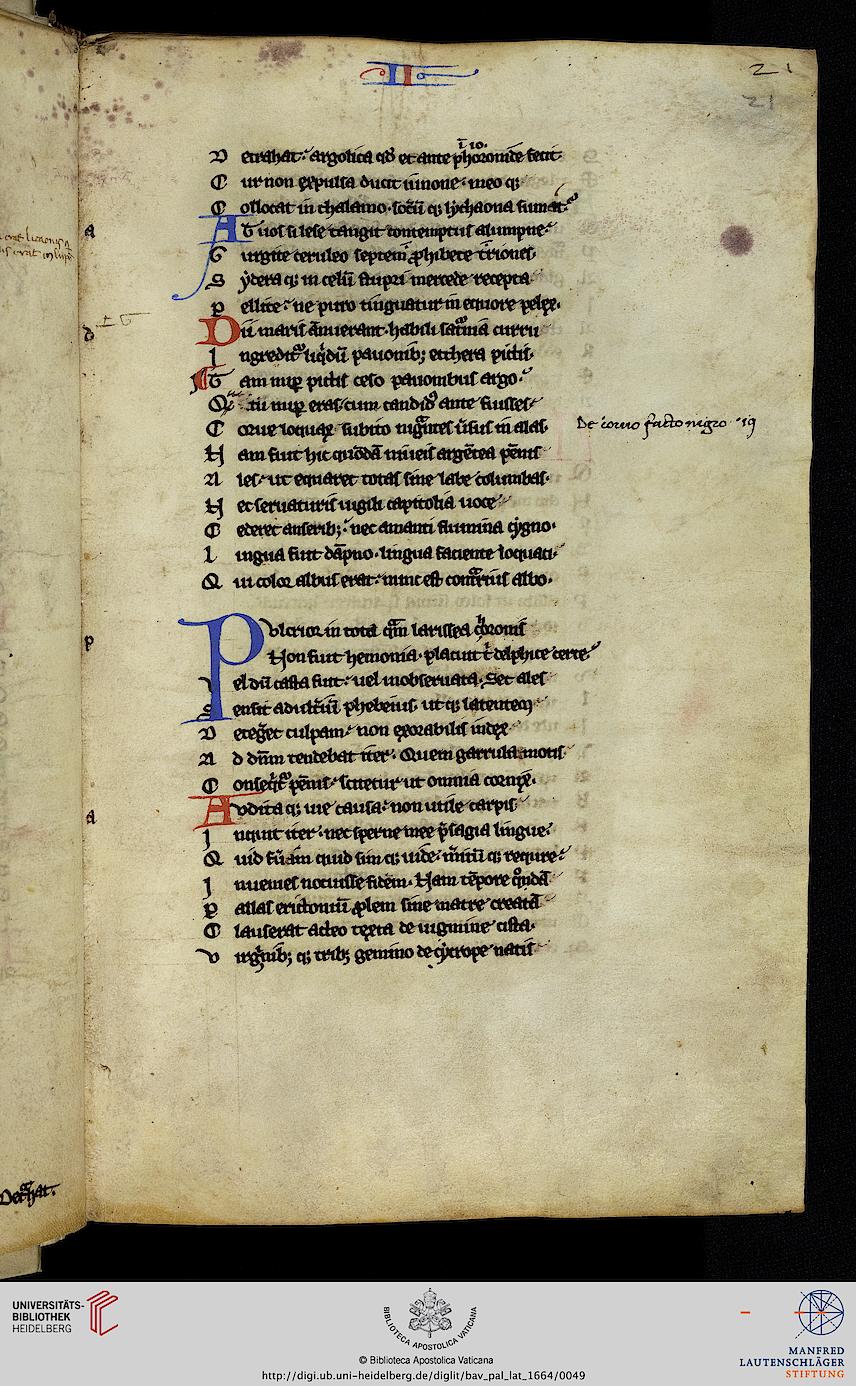 II
21
21
i. io.
Detrahat. argolica qd et ante phoronide fecit
Cur non expulsa ducit iunone. meo q;
Collocat in thalamo. socerum q; lychaona sumat.
At uos si lese tangit contemptus alumpne.
Gurgite ceruleo septem prohibete triones.
Sydera q; in celum stupri mercede recepta
Pellite. ne puro tinguatur in equore pelex.
Dii maris annuerant. habili saturnia curru
Ingreditur liquidum pauonib; ethera pictis.
Tam nuper pictis ceso pauonibus argo.
Qu tu nuper eras. cum candidus ante fuisses.
Corue loquax subito nigrantes uersus in alas.
Nam fuit hic quondam niueis argentea pennis
Ales. ut equaret totas sine labe columbas.
Nec seruaturis uigili capitolia uoce
Cederet anserib;. nec amanti flumina cygno.
Lingua fuit dampno. lingua faciente loquaci.
Qui color albus erat. nunc est contrarius albo.
De coruo facto nigro
Pulcrior in tota quam larissea choronis
Non fuit hemonia. placuit tibi delphice certe
Vel dum casta fuit. uel inobseruata. Set ales
Sensit adulterium phebeius. ut q; latentem
Detegeret culpam. non exorabilis index
Ad dominum tendebat iter. Quem garrula motis
Consequitur pennis. scitetur ut omnia cornix.
Audita q; uie causa. non utile carpis
Inquit iter. nec sperne mee presagia lingue.
Quid fuerim quid sim q; uide. meritum q; require.
Inuenies nocuisse fidem. Nam tempore quodam
Pallas erictonium prolem sine matre creatam
Clauserat acteo texta de uigmine cista.
Virginib; q; trib; gemino de cycrope natis
a
d
p
a
Detrahat.
UNIVERSITÄTS-
BIBLIOTHEK
HEIDELBERG
BIBLIOTECA APOSTOLICA VATICANA
© Biblioteca Apostolica Vaticana
http://digi.ub.uni-heidelberg.de/diglit/bav_pal_lat_1664/0049
MANFRED
LAUTENSCHLÄGER
STIFTUNG